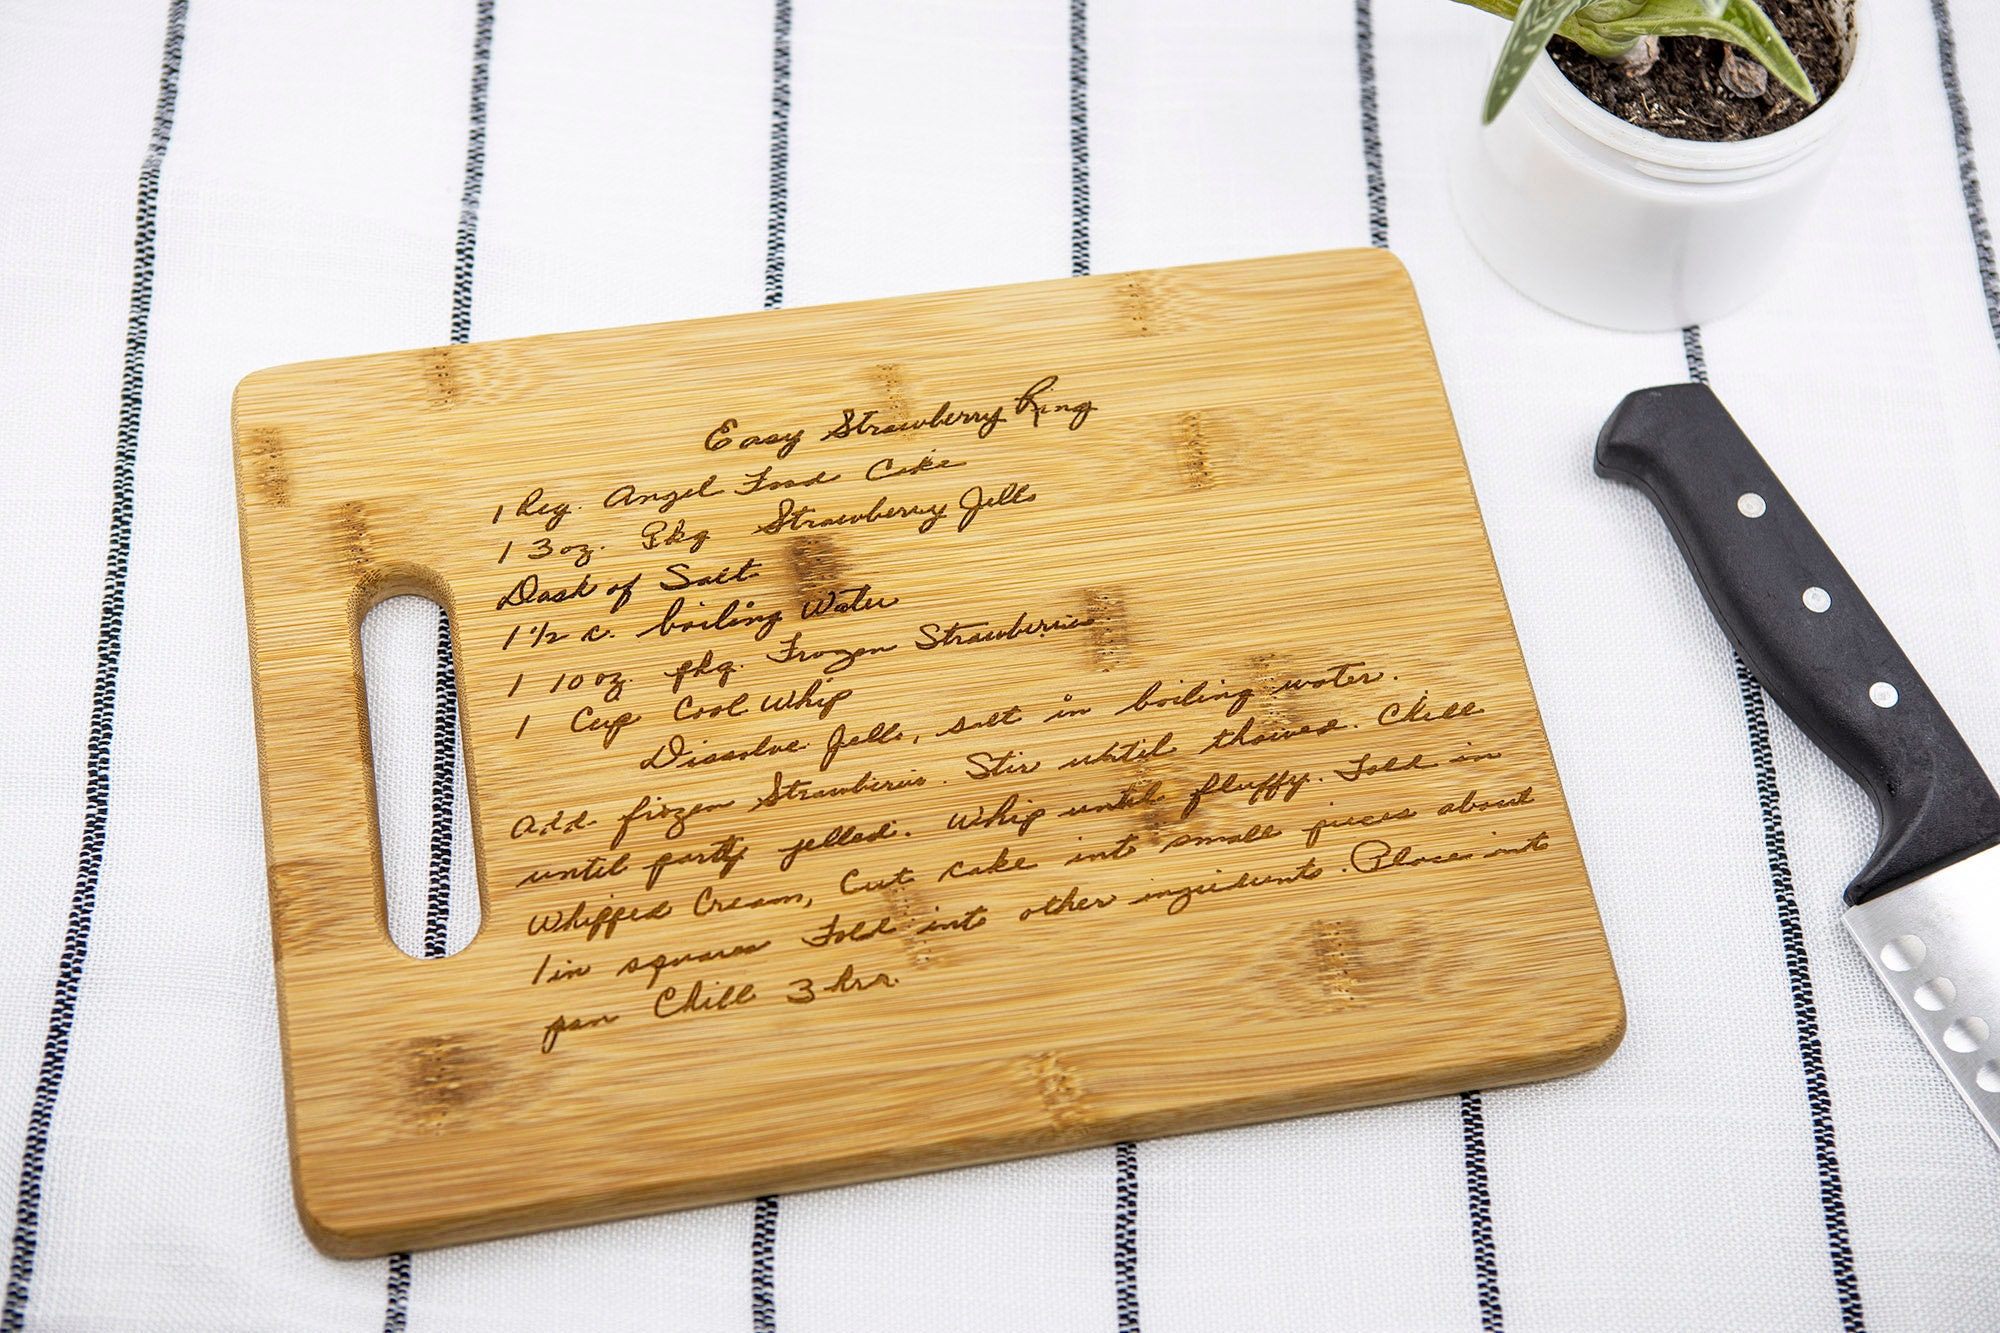 Easy Strawberry Ring
1 Reg. Angel Food Cake
1 3 oz. Pkg Strawberry Jello
Dash of Salt
1 1/2 c. boiling Water
1 10 oz. pkg. Frozen Strawberries
1 Cup Cool Whip
Dissolve Jello, salt in boiling water.
Add frozen Strawberries. Stir until thawed. Chill
until partly jelled. Whip until fluffy. Fold in
Whipped Cream, Cut cake into small pieces about
1 in squares Fold into other ingredients. Place into
pan Chill 3 hrs.